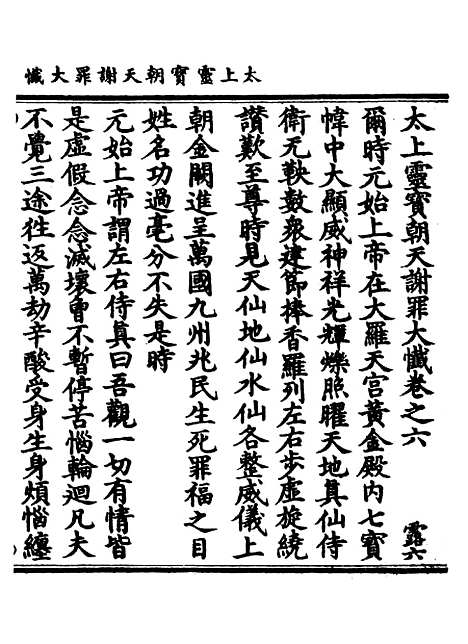 太上靈寶朝天謝罪大懺
太上靈寶朝天謝罪大懺卷之六 露六
爾時元始上帝在大羅天宫黃金殿内七寶
幃中大顯威神祥光輝爍照曜天地真仙侍
衛无鞅數衆建節捧香羅列左右步虛旋繞
讃歎至尊時見天仙地仙水仙各整威儀上
朝金闕進呈萬國九州兆民生死罪福之目
姓名功過毫分不失是時
元始上帝謂左右侍真曰吾觀一切有情皆
是虛假念念滅壞曾不暫停苦惱輪迴凡夫
不覺三途徃返萬劫辛酸受身生身煩惱纏